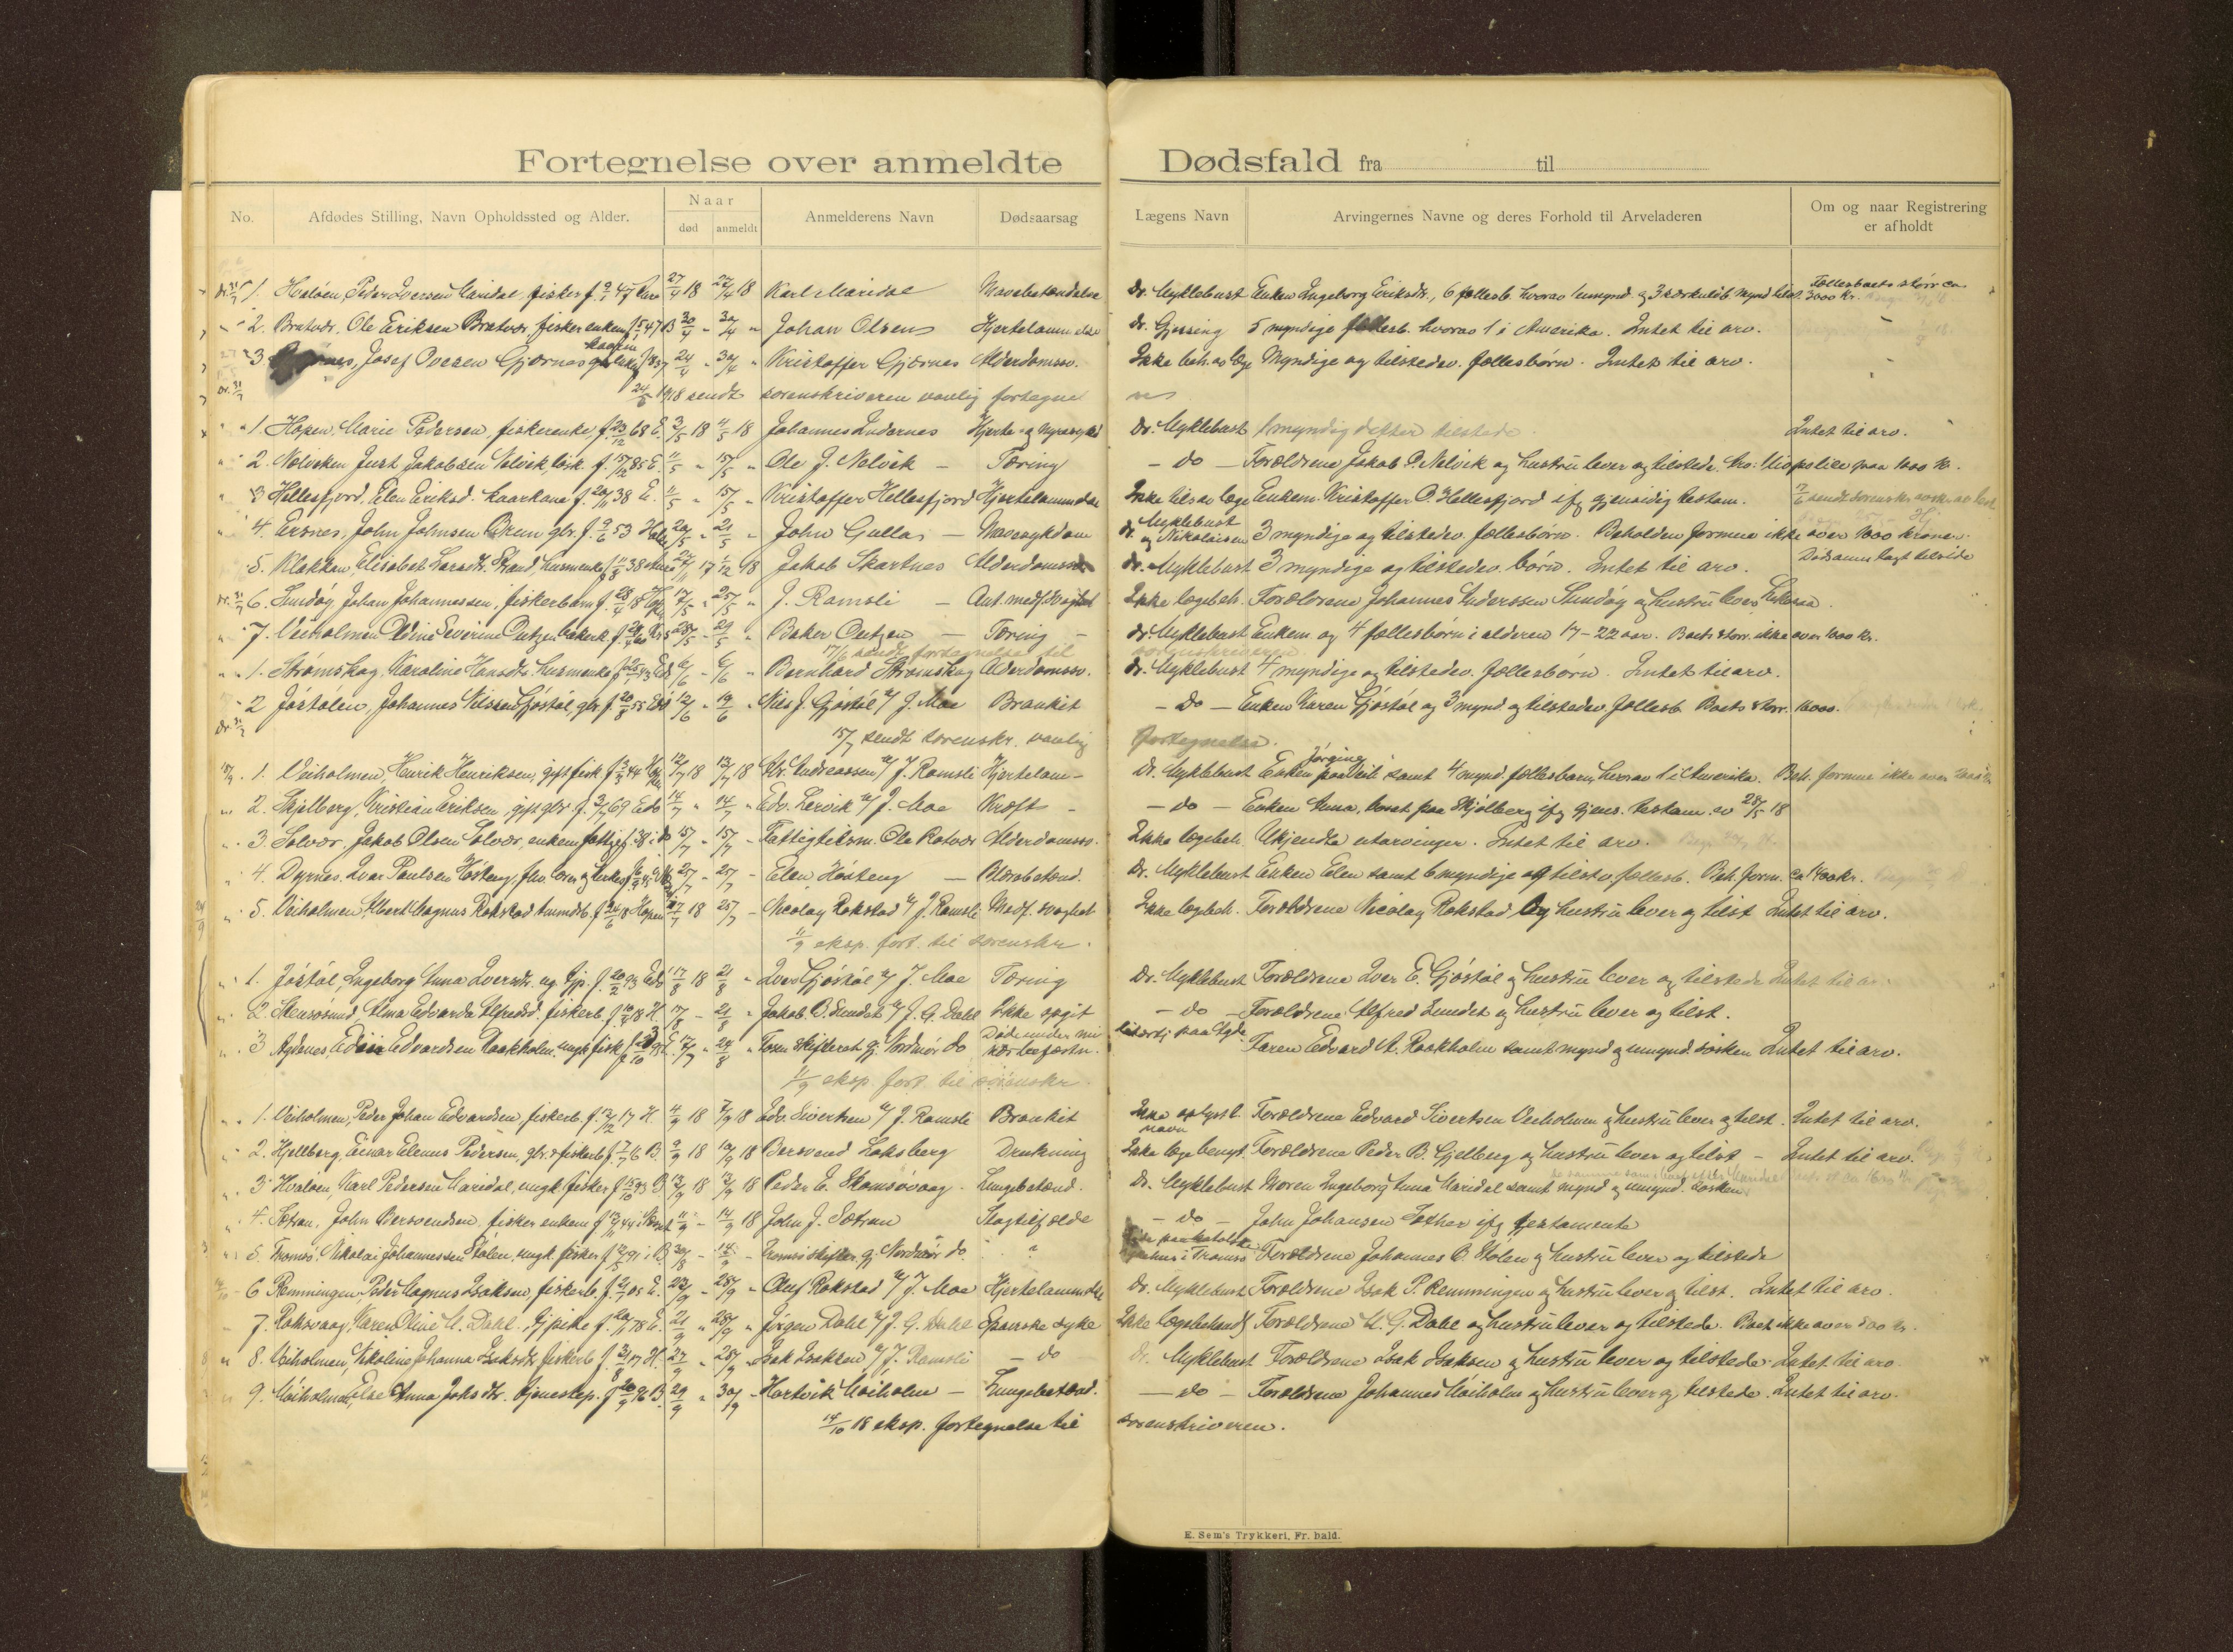 Fortegnelse over anmeldte Dødsfald fra til
No. Afdødes Stilling, Navn Opholdssted og Alder. Naar død anmeldt Anmelderens Navn Dødsaarsag Lægens Navn Arvingernes Navne og deres Forhold til Arveladeren Om og naar Registrering er afholdt
1. Hvaløen, Peder Iversen Maridal fisker f. 27/4 18 18 Karl Maridal Mavebetændelse Dr. Myklebust Enken Ingeborg Eriksdr., 6 fællesb. hvorav 1 umynd. og 3 særkuldb. mynd. Fællesboets störr ca. 3000 Kr.
2. Bratvær. Ole Eriksen Bratvær, fisker enkem. 30/4 " 30/4 " Johan Olsen Hjertelammelse Dr. Gjessing 5 myndige fællesb. hvorav 1 i Amerika. Intet til arv.
3. Josef Ovesen Gjærnes 24/4 " 30/4 " Kristoffer Gjærnes Alderdomssv. Ikke beh. av læge Myndige og tilstedev. fællesbørn. Intet til arv.
24/5 1918 sendt sorenskriveren vanlig fortegnelse
1. Hopen, Marie Pedersen, fiskerenke f. 23/12 68 E. 2/5 18 4/5 18 Johannes Andernes Hjerte- og nyresyke Dr. Myklebust 1 myndig datter tilstede. Intet til arv.
2. Nelviken Just Jakobsen Nelvik fisk. f. 15/12 85 E. 11/5 " 15/5 " Ole J. Nelvik - Tæring - do - Forældrene Jakob P. Nelvik og hustru lever og tilstede. Livspolice paa 1000 kr.
3 Hellesfjord, Elen Eriksd. kaarkone f. 20/11 38 E. 11/5 " 15/5 " Kristoffer Hellesfjord Hjertelammelse Ikke tils. av læge Enkem. Kristoffer P. Hellesfjord ifg gjensidig testam.
4. Ersnes, John Johnsen Brem gbr. f. 9/6 53 20/5 " 21/5 " John Gullas - Mavesykdom dr. Myklebust og Nikolaisen 3 myndige og tilstedev. fællesbørn. Beholden formue ikke over 1000 kroner.
5. Klakken Elisabet Larsdtr. Strand, husmenke f. 11/8 38 24/11 17 1/12 18 Jakob Skartnes Alderdomssv. dr. Myklebust 3 myndige og tilstedev. børn. Intet til arv. Dødsanm. lagt tilside
6. Sundøy, Johan Johannessen, fiskerbarn f. 28/4 18 17/5 " 25/5 " J. Ramsli - Ant. medf. svaghet Ikke lægebeh. Forældrene Johannes Anderssen Sundøy og hustru lever
7. Veiholmen Oldine Severine Outzen bakerk. 28/5 " 29/5 " Baker Outzen - Tæring - dr. Myklebust Enkem. og 4 fællesbörn i alderen 17-22 aar. Boets störr. ikke over 1000 kr.
17/6 sendt fortegnelse til sorenskriveren
1. Strömskag, Karoline Hansdtr. husmenke 6/6 - 6/6 - Bernhard Strømskag Alderdomssv. dr. Myklebust 4 myndige og tilstedev. fællesbørn. Intet til arv.
2 Jöstölen, Johannes Nilssen Gjöstöl, gbr. f. 20/8 55 Edö 12/6 " 19/6 " Nils J. Gjöstöl v/ J. Moe Bronkit - do - Enken Karen Gjöstöl og 3 mynd. og tilstedev. fællesb. Boets störr. 1000.
15/7 sendt sorenskr. vanlig fortegnelse.
1. Veiholmen, Henrik Henriksen, gift fisk. 12/7 18 13/7 18 Chr. Andreassen v/ J. Ramsli Hjertelam- Dr. Myklebust Enken Jörgine samt 4 mynd. fællesbarn, hvorav 1 i Amerika. Beh. formue ikke over
2. Skjelberg, Kristian Eriksen, gift gbr. f. 3/7 69 Edö 14/7 " 14/7 " Edv. Lervik v/ J. Moe Kræft - - do - Enken Anna, boset paa Skjølberg ifg gjens. testam. av 28/5 18
3. Solvær, Jakob Olsen Solvær, enkem. 15/7 - 15/7 - Fattigtilsm. Ole Rotvær Alderdomssv. Ikke lægebeh. Ukjendte utarvinger. Intet til arv.
4. Dyrnes. Ivar Paulsen Hösteng 25/7 - 25/7 - Elen Hösteng - Blærebetænd. Dr. Myklebust Enken Elen samt 6 myndige og tilstev. fællesb. Beh. form. ca 1400 kr.
5. Veiholmen, Albert Magnus Rokstad f. 24/6 18 Hopen 18 25/7 - Nicolay Rokstad v/ J. Ramsli Medf. svaghet Ikke lægbeh. Forældrene Nicolay Rokstad og hustru lever og tilst. Intet til arv.
11/9 eksp. fort. til sorenskr.
1. Jöstöl, Ingeborg Anna Iversdtr. ug. f. 20/2 93 Edö 17/8 18 21/8 " Iver Gjöstöl v/ J. Moe Tæring Dr. Myklebust Forældrene Iver E. Gjöstöl og hustru lever og tilstede Intet til arv.
2. Stensösund, Alma Edvarda Alfredsd. fiskerb. f. 10/4 18 H. 17/8 - 21/8 " Jakob O. Sundet v/ J. G. Dahl Ikke opgit - do - Forældrene Alfred Sundet og hustru lever og tilst.
3 Agdenes, Edvardsen Raakholm, ungk. fisk. 24/8 " skifteret gj. Nordmör do Døde under militærtj. paa Agdenes befæstn. Faren Edvard A. Raakholm samt mynd. og umynd. søsken Intet til arv.
11/9 eksp. fort til sorenskr.
1. Veiholmen, Peder Johan Edvardsen, fiskerb. f. 12/12 17 H. 4/9 18 7/9 18 Edv. Sivertsen v/ J. Ramsli Bronkit Ikke oplyst l. navn Forældrene Edvard Sivertsen Veiholmen og hustru lever og tilst. Intet til arv.
2. Hjellberg, Einar Elenus Pedersen, gbr. & fiskerb. f. 7/7 16 B. 9/9 18 10/9 18 Bersvend Laksberg Drukning Ikke læge benyt. Forældrene Peder B. Gjelberg og hustru lever og tilst - Intet til arv.
3 Hvaløen, Karl Pedersen Maridal, ungk. fisker f. 15/10 93 B. 12/9 18 12/9 18 Peder E. Skomsövaag. Lungebetænd. Dr. Myklebust Moren Ingeborg Anna Maridal samt mynd. og umynd. søsken
4. Sætran, John Bersvendsen. fisker enkem. 11/9 - 14/9 18 John J. Sætran Slagtilfælde - do - John Johansen Sæther ifg testamente
5. Tromsö. Nikolai Johannessen Stølen, ungk. fisker 20/8 - 14/9 - Tromsö skifter. gj. Nordmör do. " Døde paa katolske sykehus i Tromsö Forældrene Johannes O. Stölen og hustru lever og tilstede
6 Remmingen, Peder Magnus Isaksen, fiskerb. f. 2/1 05 E. 22/9 - 25/9 - Oluf Rokstad v/ J. Moe Hjertelammelse Dr. Myklebust Forældrene Isak P. Remmingen og hustru lever og tilst. Intet til arv.
7. Roksvaag, Karen Oline M. Dahl. Gj.pike f. 20/11 78 E. 21/9 " 28/9 " Jörgen Dahl v/ J. G. Dahl Spanske syke Ikke lægebehandl. Forældrene M. G. Dahl og hustru lever og tilstede. Boet ikke over 500 kr.
8. Veiholmen, Nikoline Johanna Isaksdtr. fiskerb. f. 3/8 17 H. 27/9 " 28/9 " Isak Isaksen v/ J. Ramsli - do Dr. Myklebust Forældrene Isak Isaksen og hustru lever og tilstede. Intet til arv.
9. Möiholmen, Else Anna Johsdtr. tjenestep. f. 20/9 96 B. 29/9 " 30/9 - Hartvik Möiholm - Lungebetænd. - do - Forældrene Johannes Möiholm og hustru lever og tilstede. Intet til arv.
14/10 18 eksp. fortegnelse til sorenskriveren.
E. Sem's Trykkeri, Fr. hald.